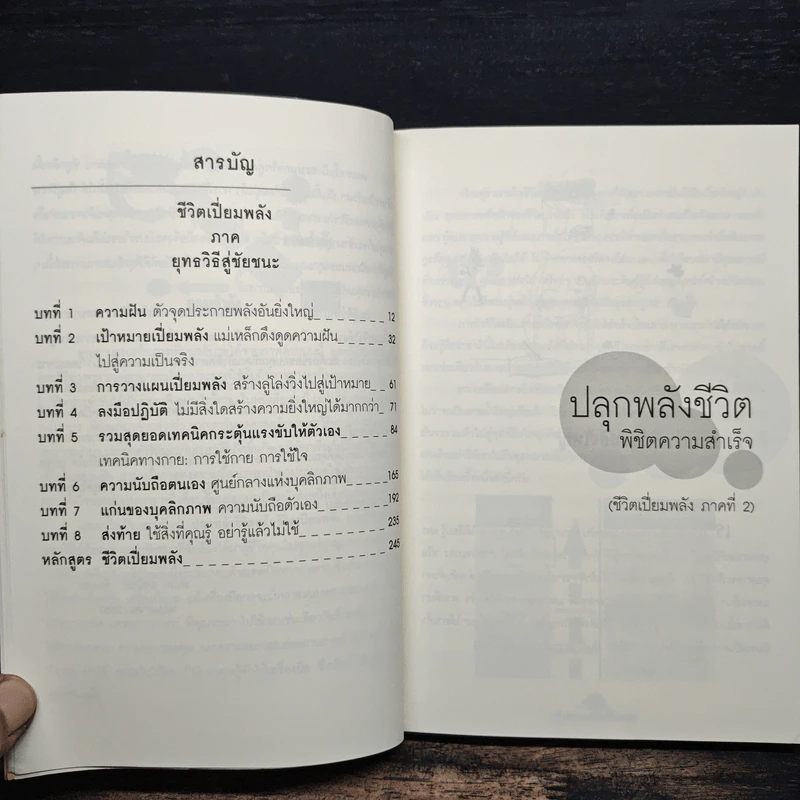 สารบัญ
ชีวิตเปี่ยมพลัง
ภาค
ยุทธวิธีสู่ชัยชนะ
บทที่ 1 ความฝัน ตัวจุดประกายพลังอันยิ่งใหญ่ 12
บทที่ 2 เป้าหมายเปี่ยมพลัง แม่เหล็กดึงดูดความฝัน 32
ไปสู่ความเป็นจริง
บทที่ 3 การวางแผนเปี่ยมพลัง สร้างลู่โล่งวิ่งไปสู่เป้าหมาย 61
บทที่ 4 ลงมือปฏิบัติ ไม่มีสิ่งใดสร้างความยิ่งใหญ่ได้มากกว่า 71
บทที่ 5 รวมสุดยอดเทคนิคกระตุ้นแรงขับให้ตัวเอง 84
เทคนิคทางกาย: การใช้กาย การใช้ใจ
บทที่ 6 ความนับถือตนเอง ศูนย์กลางแห่งบุคลิกภาพ 165
บทที่ 7 แก่นของบุคลิกภาพ ความนับถือตัวเอง 192
บทที่ 8 ส่งท้าย ใช้สิ่งที่คุณรู้ อย่ารู้แล้วไม่ใช้ 235
หลักสูตร ชีวิตเปี่ยมพลัง 245
ปลุกพลังชีวิต
พิชิตความสำเร็จ
(ชีวิตเปี่ยมพลัง ภาคที่ 2)